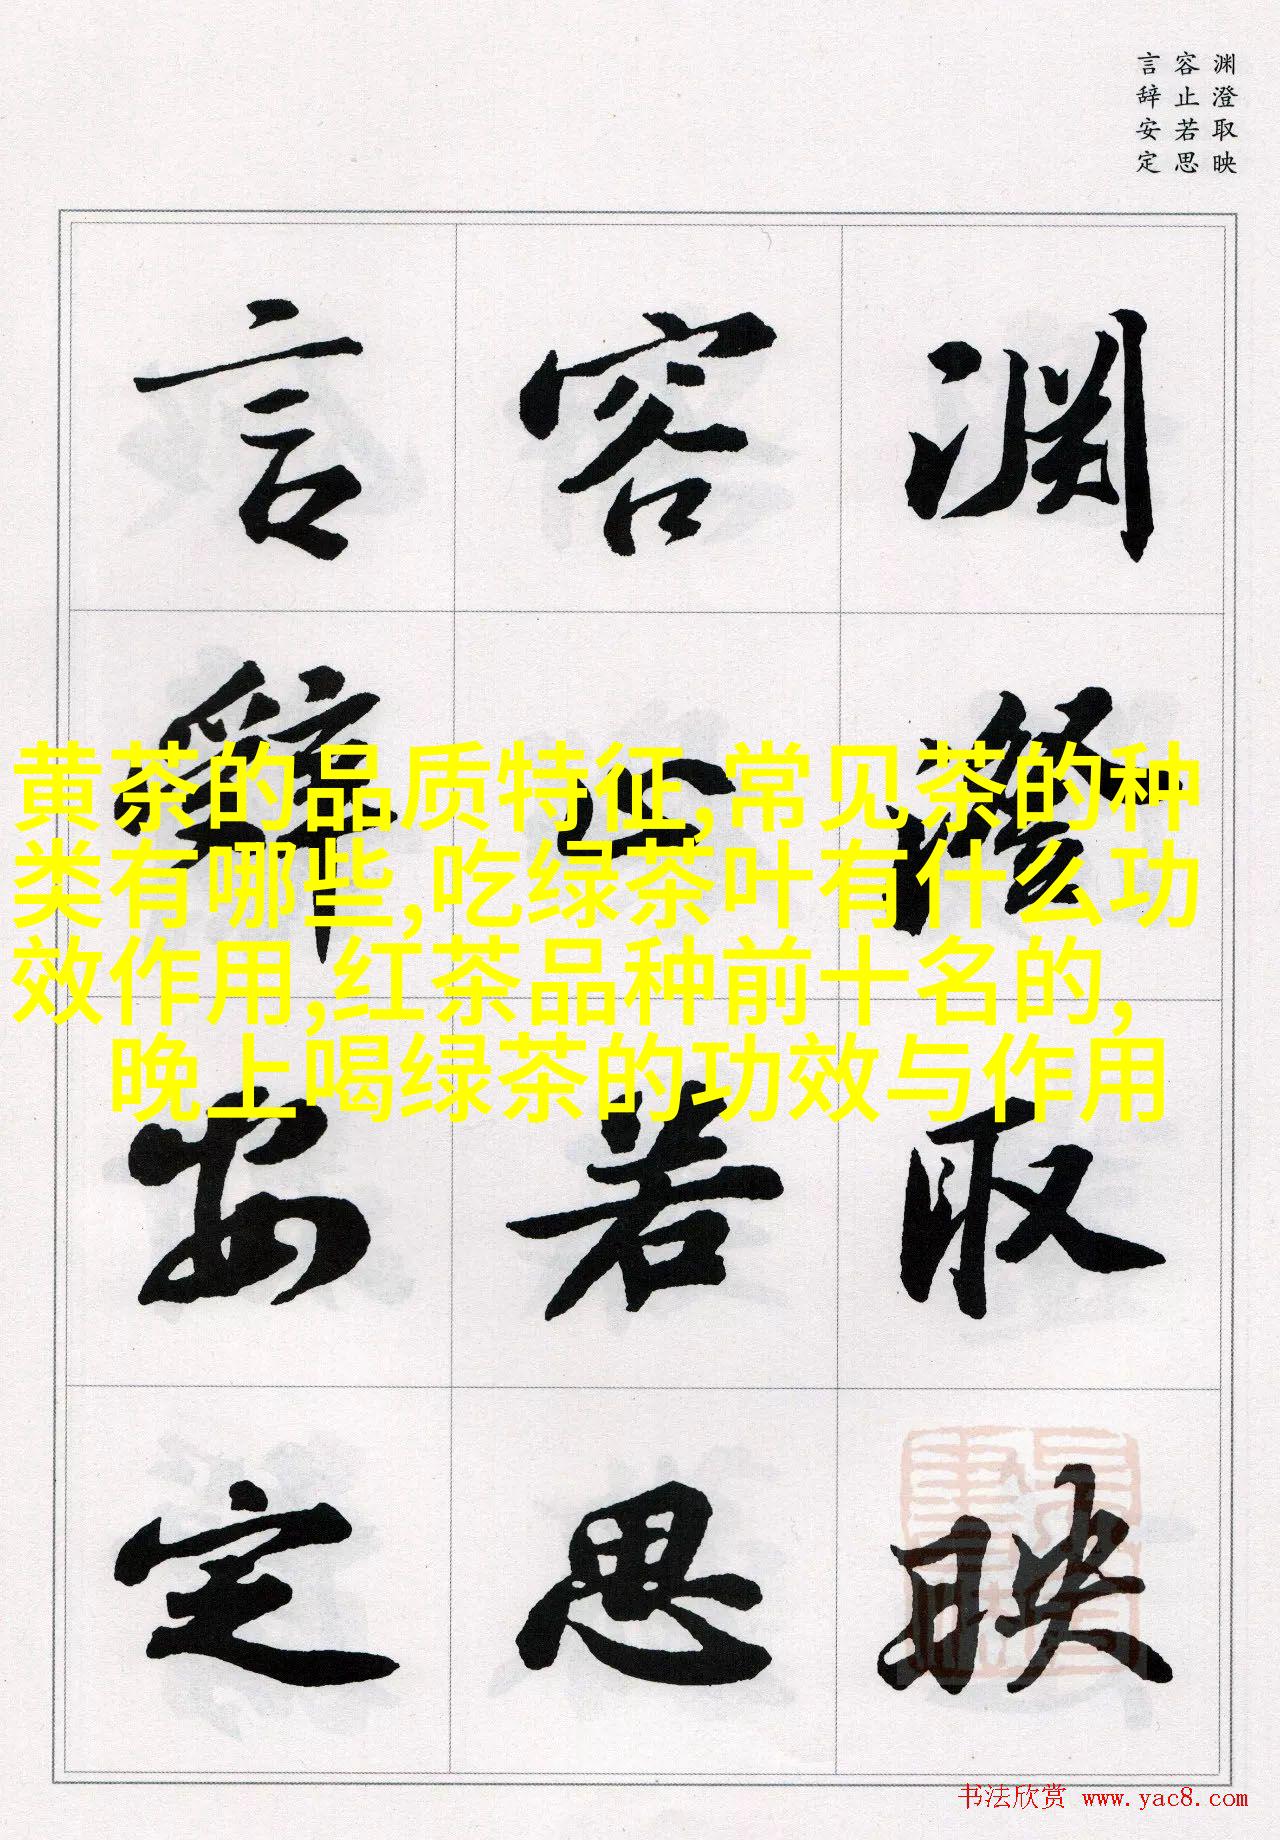 渊澄取映
容止若思
言辞安定
渊澄取映
容止若思
言辭安定
黄茶的品质特征,常见茶的种
类有哪些,吃绿茶叶有什么功
效作用,红茶品种前十名的,
晚上喝绿茶的功效与作用
书法欣赏 www.yac8.com